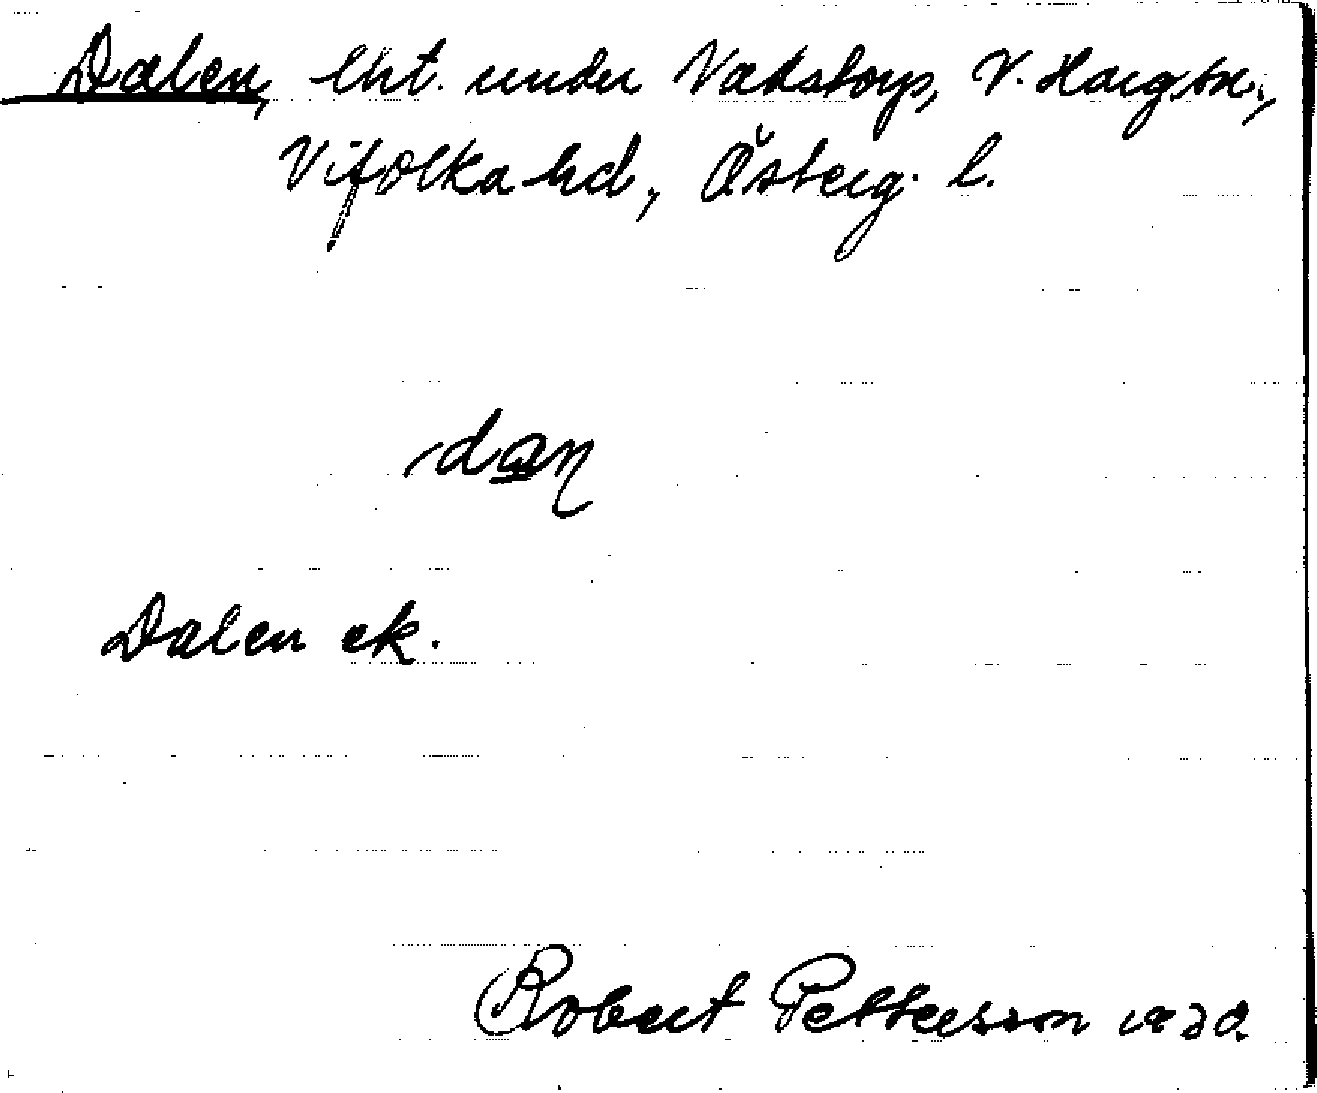 Dalen, lht. under Vakstorp, V. Harg sn.,
Vifolka hd, Österg. l.
dan
Dalen ek.
Robert Pettersson